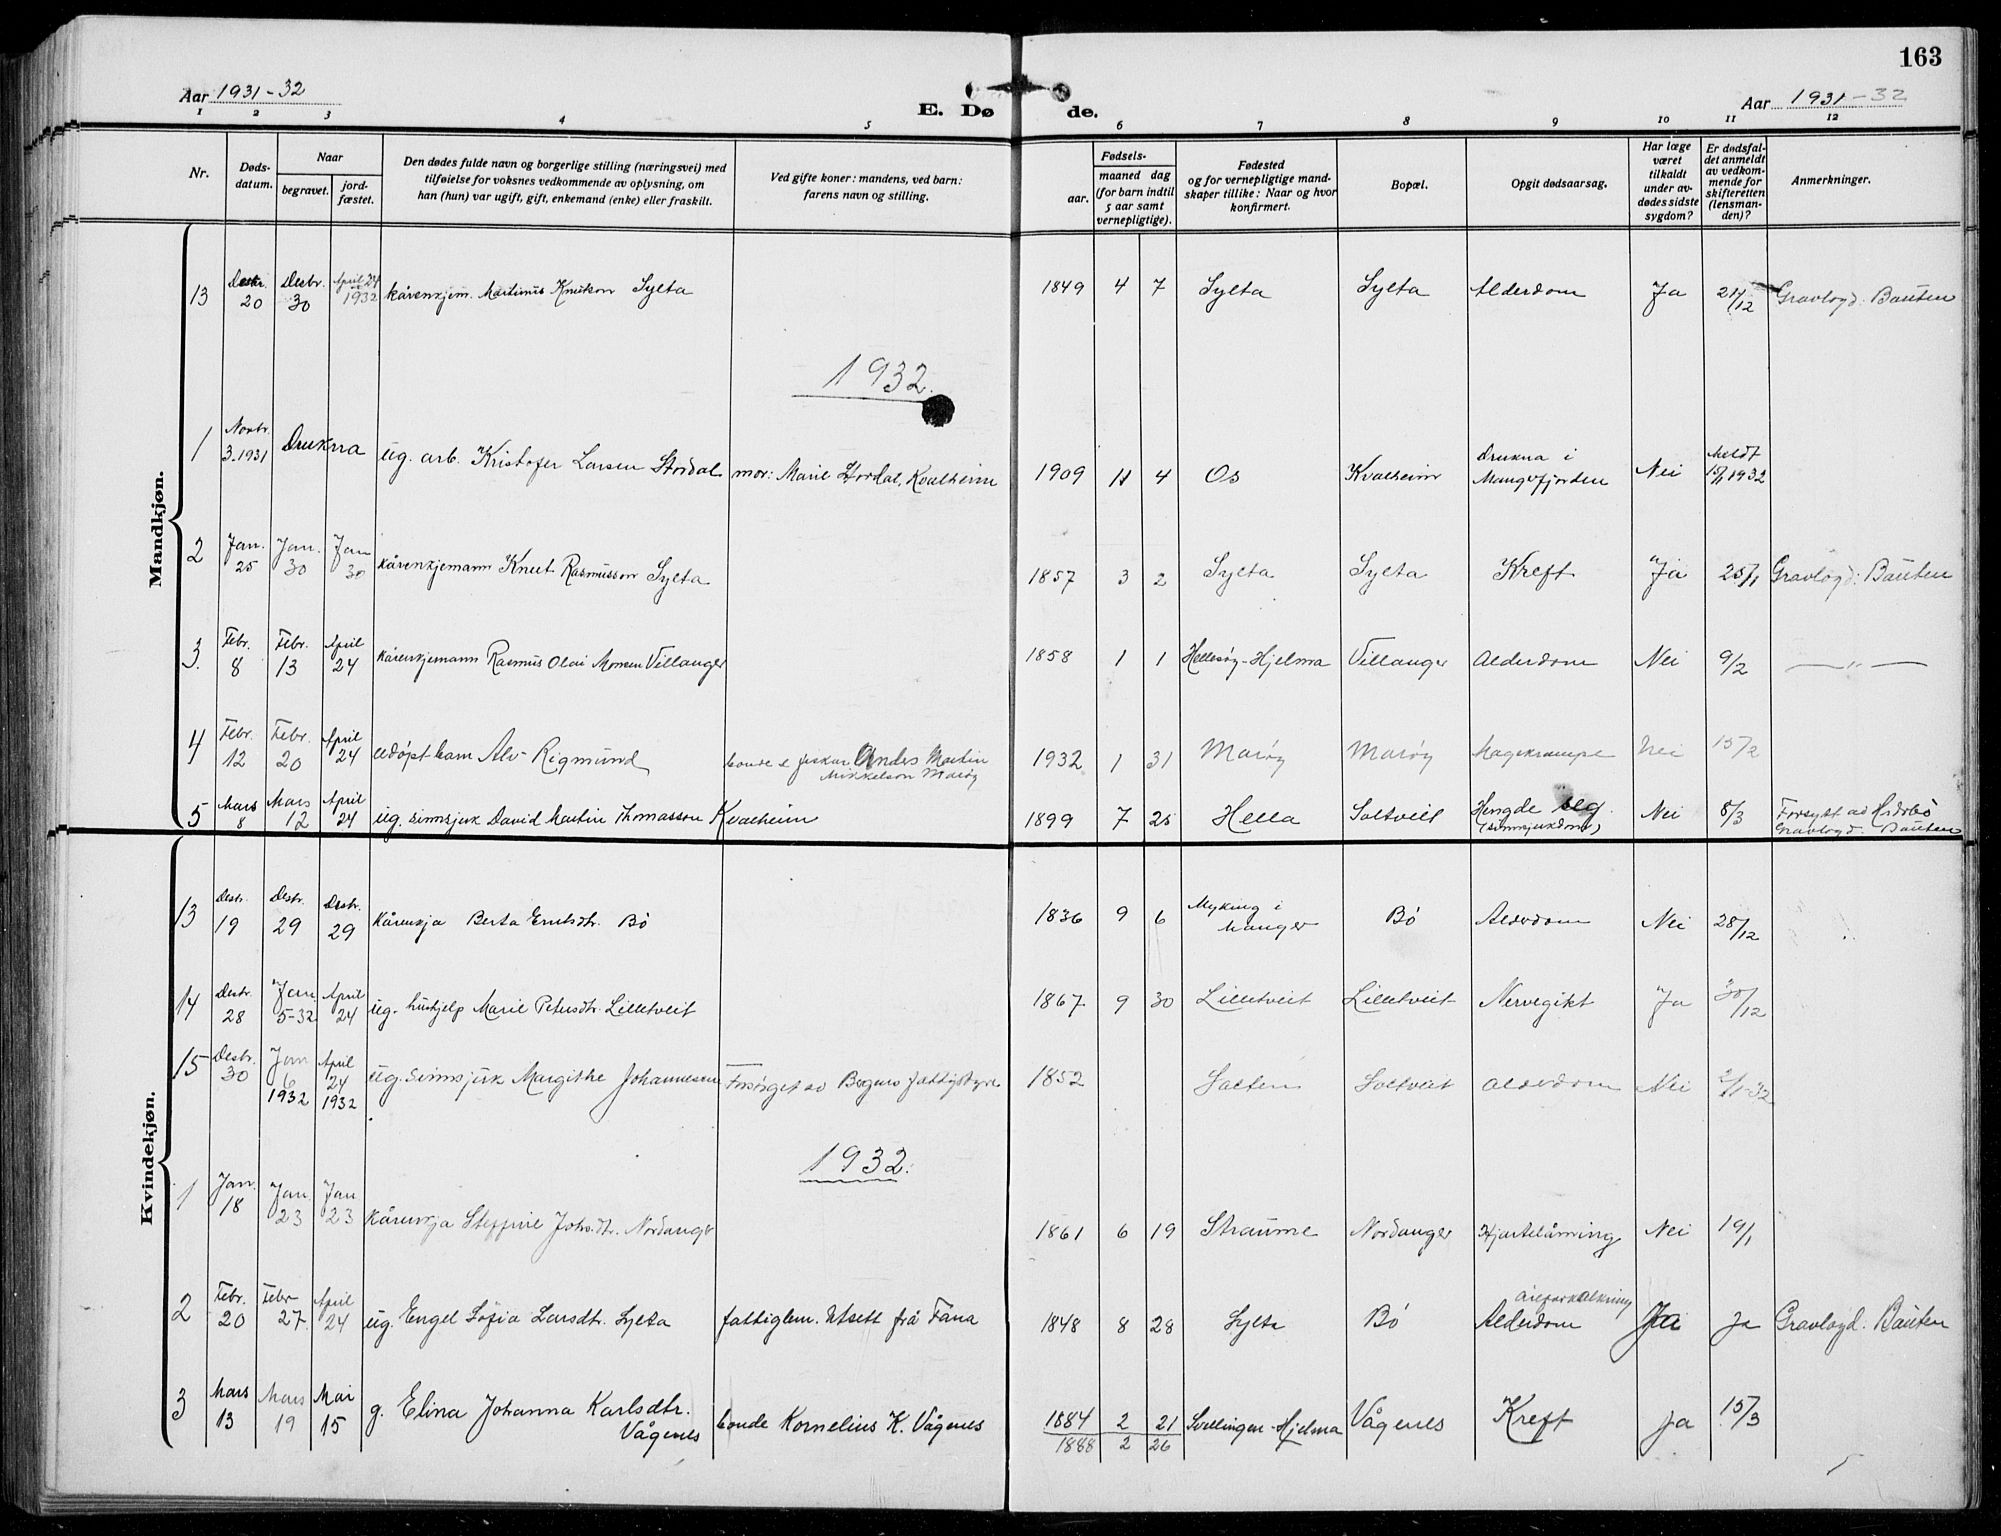 163
Aar 1931-32
E. Dø de.
Aar 1931-32
1 2 3 4 5 6 7 8 9 10 11 12
Nr.
Døds-
datum.
Naar
begravet.
jord-
fæstet.
Den dødes fulde navn og borgerlige stilling (næringsvei) med
tilføielse for voksnes vedkommende av oplysning, om
han (hun) var ugift, gift, enkemand (enke) eller fraskilt.
Ved gifte koner: mandens, ved barn:
farens navn og stilling.
Fødsels-
aar.
maaned dag
(for barn indtil
5 aar samt
vernepligtige).
Fødested
og for vernepligtige mand-
skaper tillike: Naar og hvor
konfirmert.
Bopæl.
Opgit dødsaarsag.
Har læge
været
tilkaldt
under av-
dødes sidste
sygdom?
Er dødsfal-
det anmeldt
av vedkom-
mende for
skifteretten
(lensman-
den)?
Anmerkninger.
Mandkjøn.
13 Desbr. 20 Desbr. 30 April 24 1932 kårenkjem. Martinus Knutson Sylta 1849 4 7 Sylta Sylta Alderdom Ja 21/12 Gravlogd: Bauten
1932.
1 Novbr. 3-1931 Drukna ug. arb. Kristofer Larsen Stordal mor: Marie Stordal, Kvalheim 1909 11 4 Os Kvalheim Drukna i Mangerfjorden Nei Meldt 15/1 1932
2 Jan. 25 Jan. 30 Jan 30 kårenkjemann Knut Rasmusson Sylta 1857 3 2 Sylta Sylta Kreft Ja 25/1 Gravlogd: Bauten
3. Febr. 8 Febr. 13 April 24 kårenkjemann Rasmus Olai Monsen Villanger 1858 1 1 Hellesøy-Hjelma Villanger Alderdom Nei 9/2 — „ —
4 Febr. 12 Febr. 20 April 24 udøpt barn Alv Rigmund bonde & fiskar Anders Martin Mikkelson Marøy 1932 1 31 Marøy Marøy Magekrampe Nei 15/2
5 Mars 8 Mars 12 April 24 ug. sinnsjuk David Martin Thomasson Kvalheim 1899 7 25 Hella Soltveit Hengde seg (sinnsjukdom) Nei 8/3 Forsytt av Herdla Gravlogd: Bauten
Kvindekjøn.
13 Desbr. 19 Desbr. 29 Desbr. 29 kårenkja Berta Erntsdtr. Bö 1836 9 6 Myking i Manger Bö Alderdom Nei 28/12
14 Desbr. 28 Jan. 5-32 April 24 ug. hushjelp Marie Petersdtr. Lilletveit 1867 9 30 Lilletveit Lilletveit Nervegikt Ja 30/12
15 Desbr. 30 Jan 6 1932 April 24 1932 ug. sinnsjuk Margithe Johannesen Forsørget av Bergens fattigstyre 1852 Salten Soltveit Alderdom Nei 2/1-32
1932.
1 Jan. 18 Jan. 23 Jan 23 kårenkja Steffine Johs.dtr. Nordanger 1861 6 19 Straume Nordanger Hjartelåming Nei 19/1
2 Febr. 20 Febr 27 April 24 ug. Engel Sofia Larsdtr. Sylta fattiglem. Utsett frå Fana 1848 8 28 Sylta Bö Alderdom åreforkalkning Ja Ja Gravlogd. Bauten
3 Mars 13 Mars 19 Mai 15 g. Elina Johanna Karlsdtr. Vågenes bonde Kornelius K. Vågenes 1884 2 21 Svellingen-Hjelma Vågenes Kreft Ja 15/3
1888 2 26